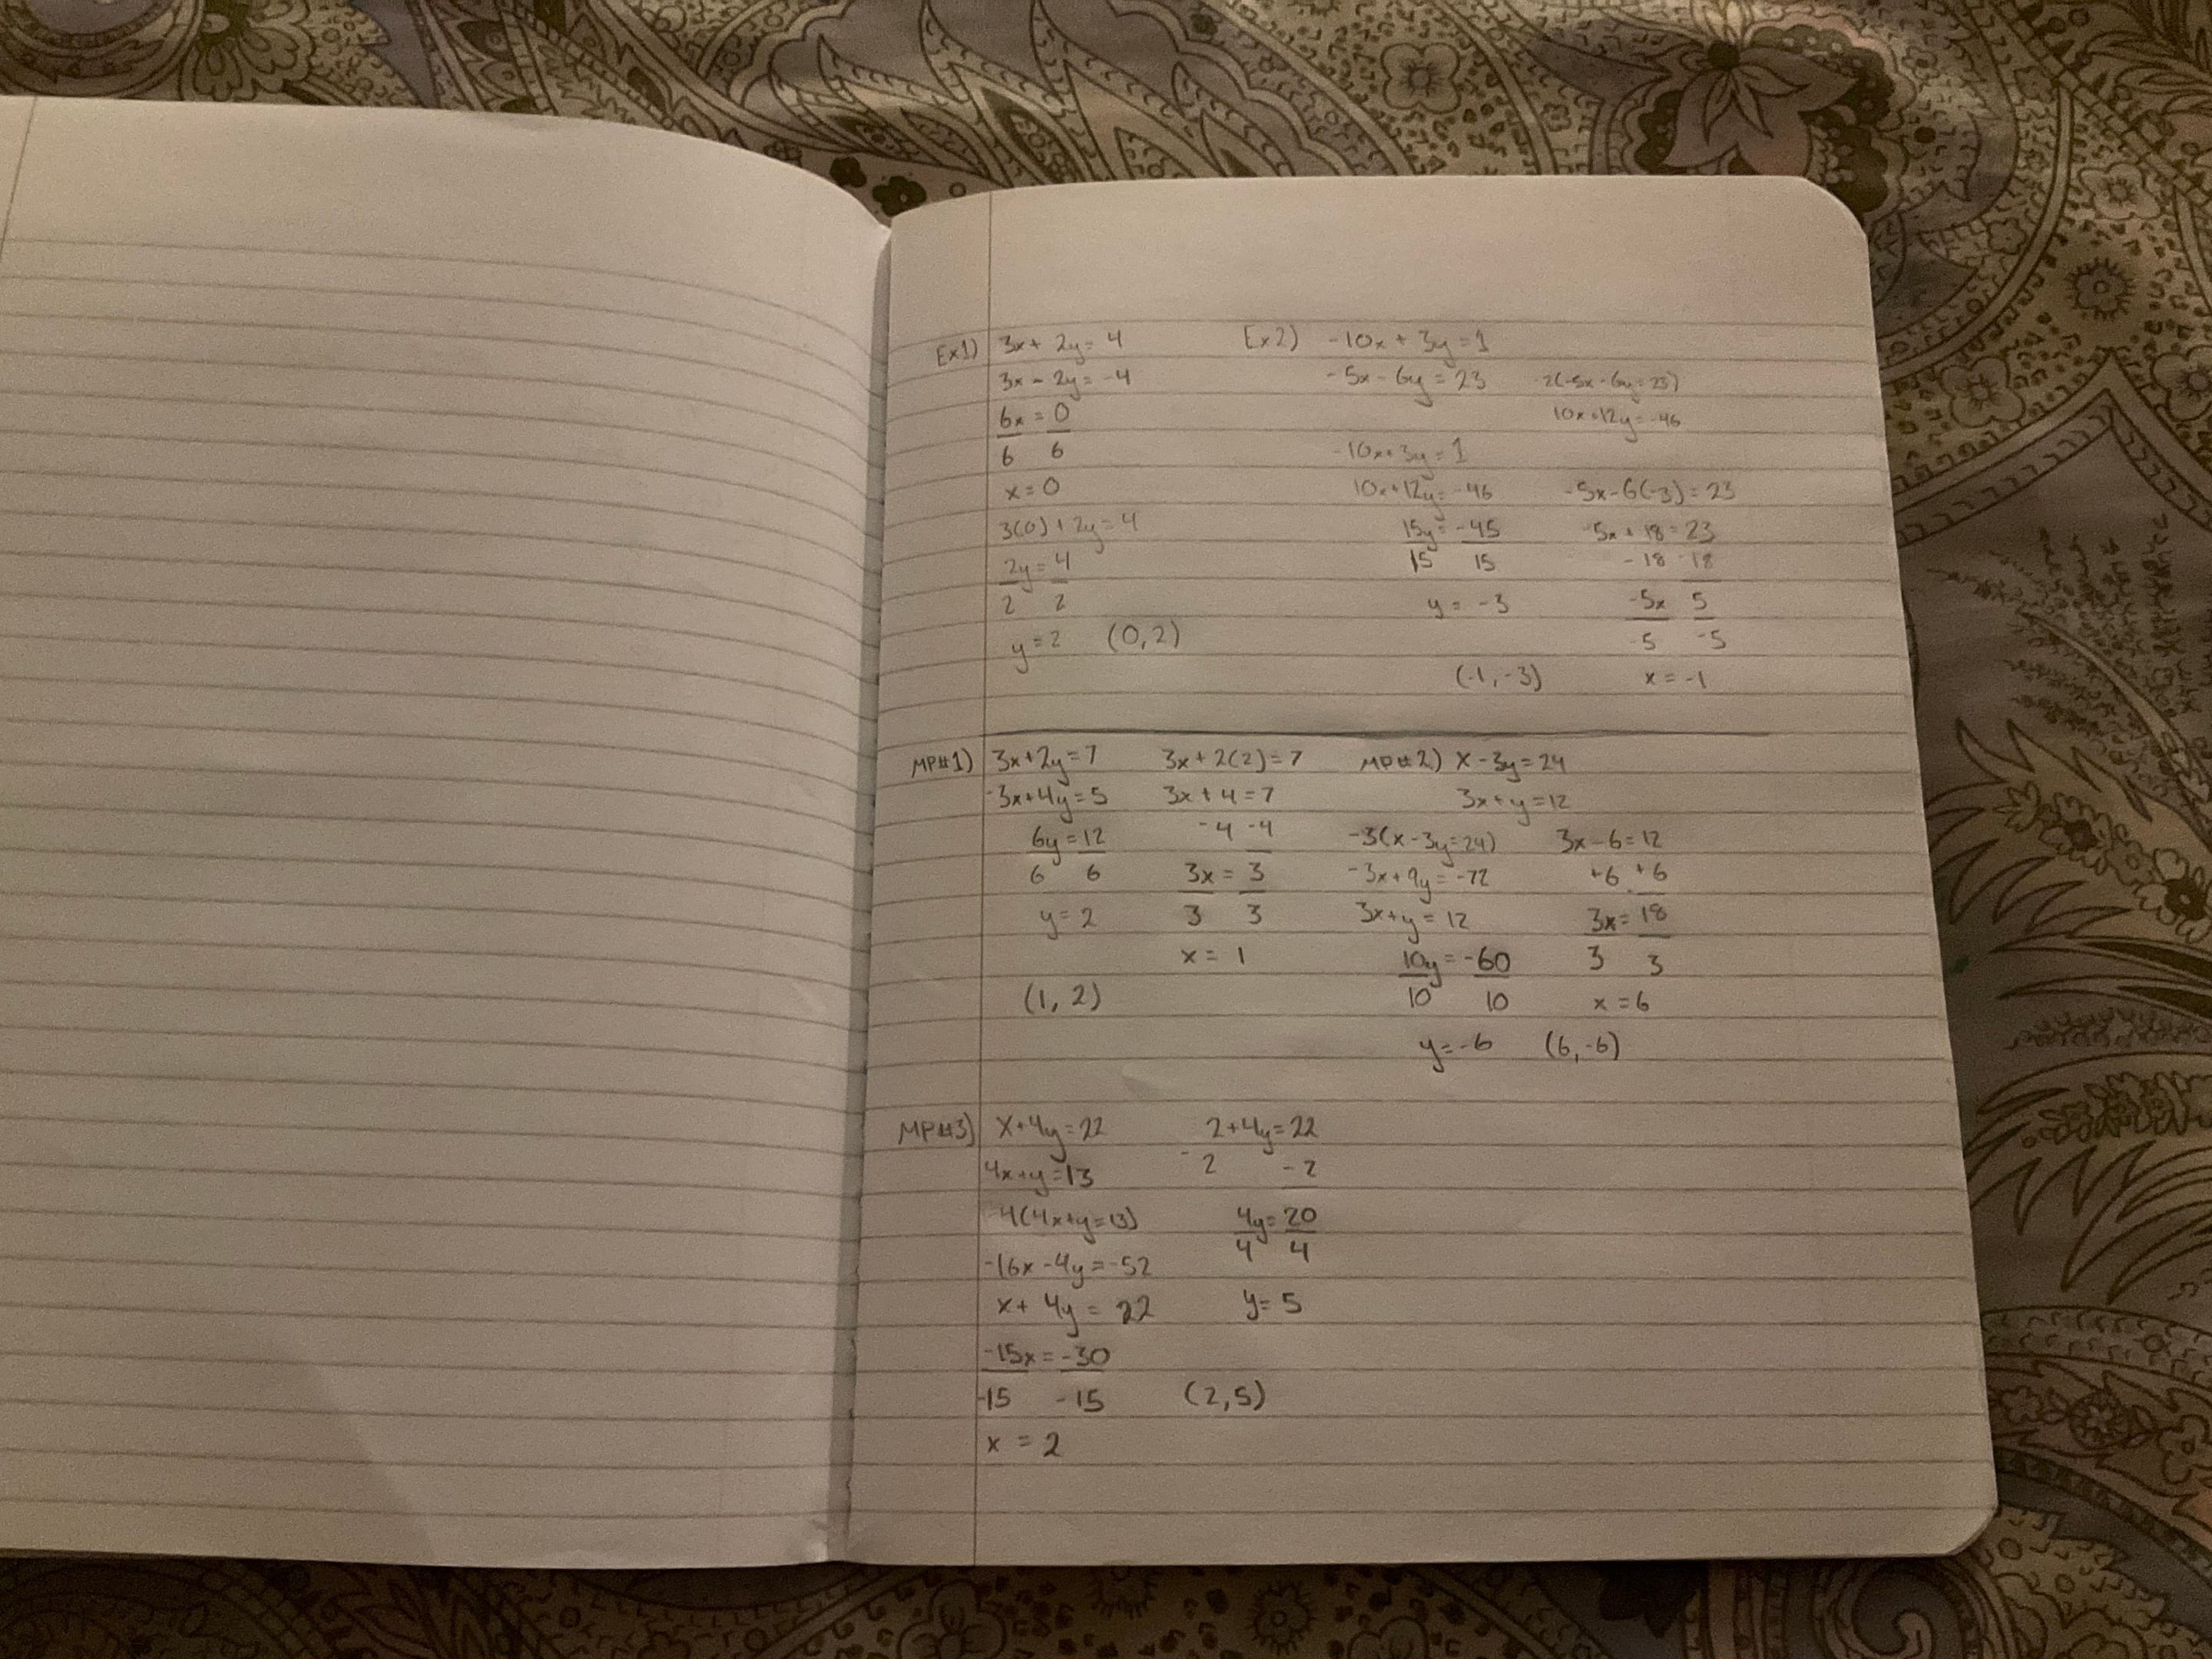 Ex1) 3x + 2y = 4
3x - 2y = -4
6x = 0
6 6
x = 0
3(0) + 2y = 4
2y = 4
2 2
y = 2 (0,2)
Ex2) -10x + 3y = 1
-5x - 6y = 23
-2(-5x - 6y = 23)
10x + 12y = -46
-10x + 3y = 1
10x + 12y = -46
15y = -45
15 15
y = -3
-5x - 6(-3) = 23
-5x + 18 = 23
-18 -18
-5x 5
-5 -5
x = -1
(-1, -3)
MP#1) 3x + 2y = 7
-3x + 4y = 5
6y = 12
6 6
y = 2
3x + 2(2) = 7
3x + 4 = 7
-4 -4
3x = 3
3 3
x = 1
(1, 2)
MP#2) x - 3y = 24
3x + y = 12
-3(x - 3y = 24)
-3x + 9y = -72
3x + y = 12
10y = -60
10 10
y = -6
3x - 6 = 12
+6 +6
3x = 18
3 3
x = 6
(6, -6)
MP#3) x + 4y = 22
4x + y = 13
-4(4x + y = 13)
-16x - 4y = -52
x + 4y = 22
-15x = -30
-15 -15
x = 2
2 + 4y = 22
-2 -2
4y = 20
4 4
y = 5
(2, 5)